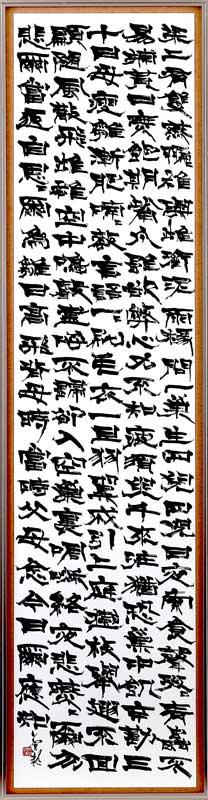 梁上有雙燕翩翩雄與雌銜泥兩椽間一巢生四兒四兒日夜索食聲孜孜青蟲不
易捕黃口無飽期觜爪雖欲弊心力不知疲須臾千來往猶恐巢中飢辛勤三
十日母瘦雛漸肥喃喃教言語一一刷毛衣一旦羽翼成引上庭樹枝舉翅不回
顧隨風散飛雌雄空中鳴聲盡呼不歸卻入空巢裏啁啾終夜悲燕燕爾勿
悲爾當返自思爾為雛日高飛背母時當時父母念今日爾應知